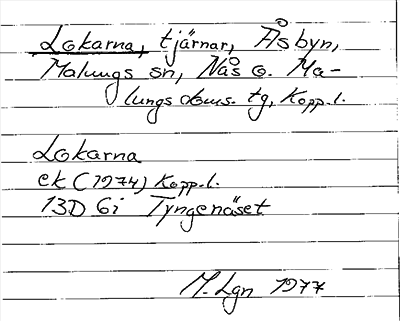 Lokarna, tjärnar, Åsbyn,
Malungs sn, Nås o. Ma-
lungs doms. tg, Kopp. l.
Lokarna
ek (1974) Kopp. l.
13D 6i Tyngenäset
M. Lgn 1977